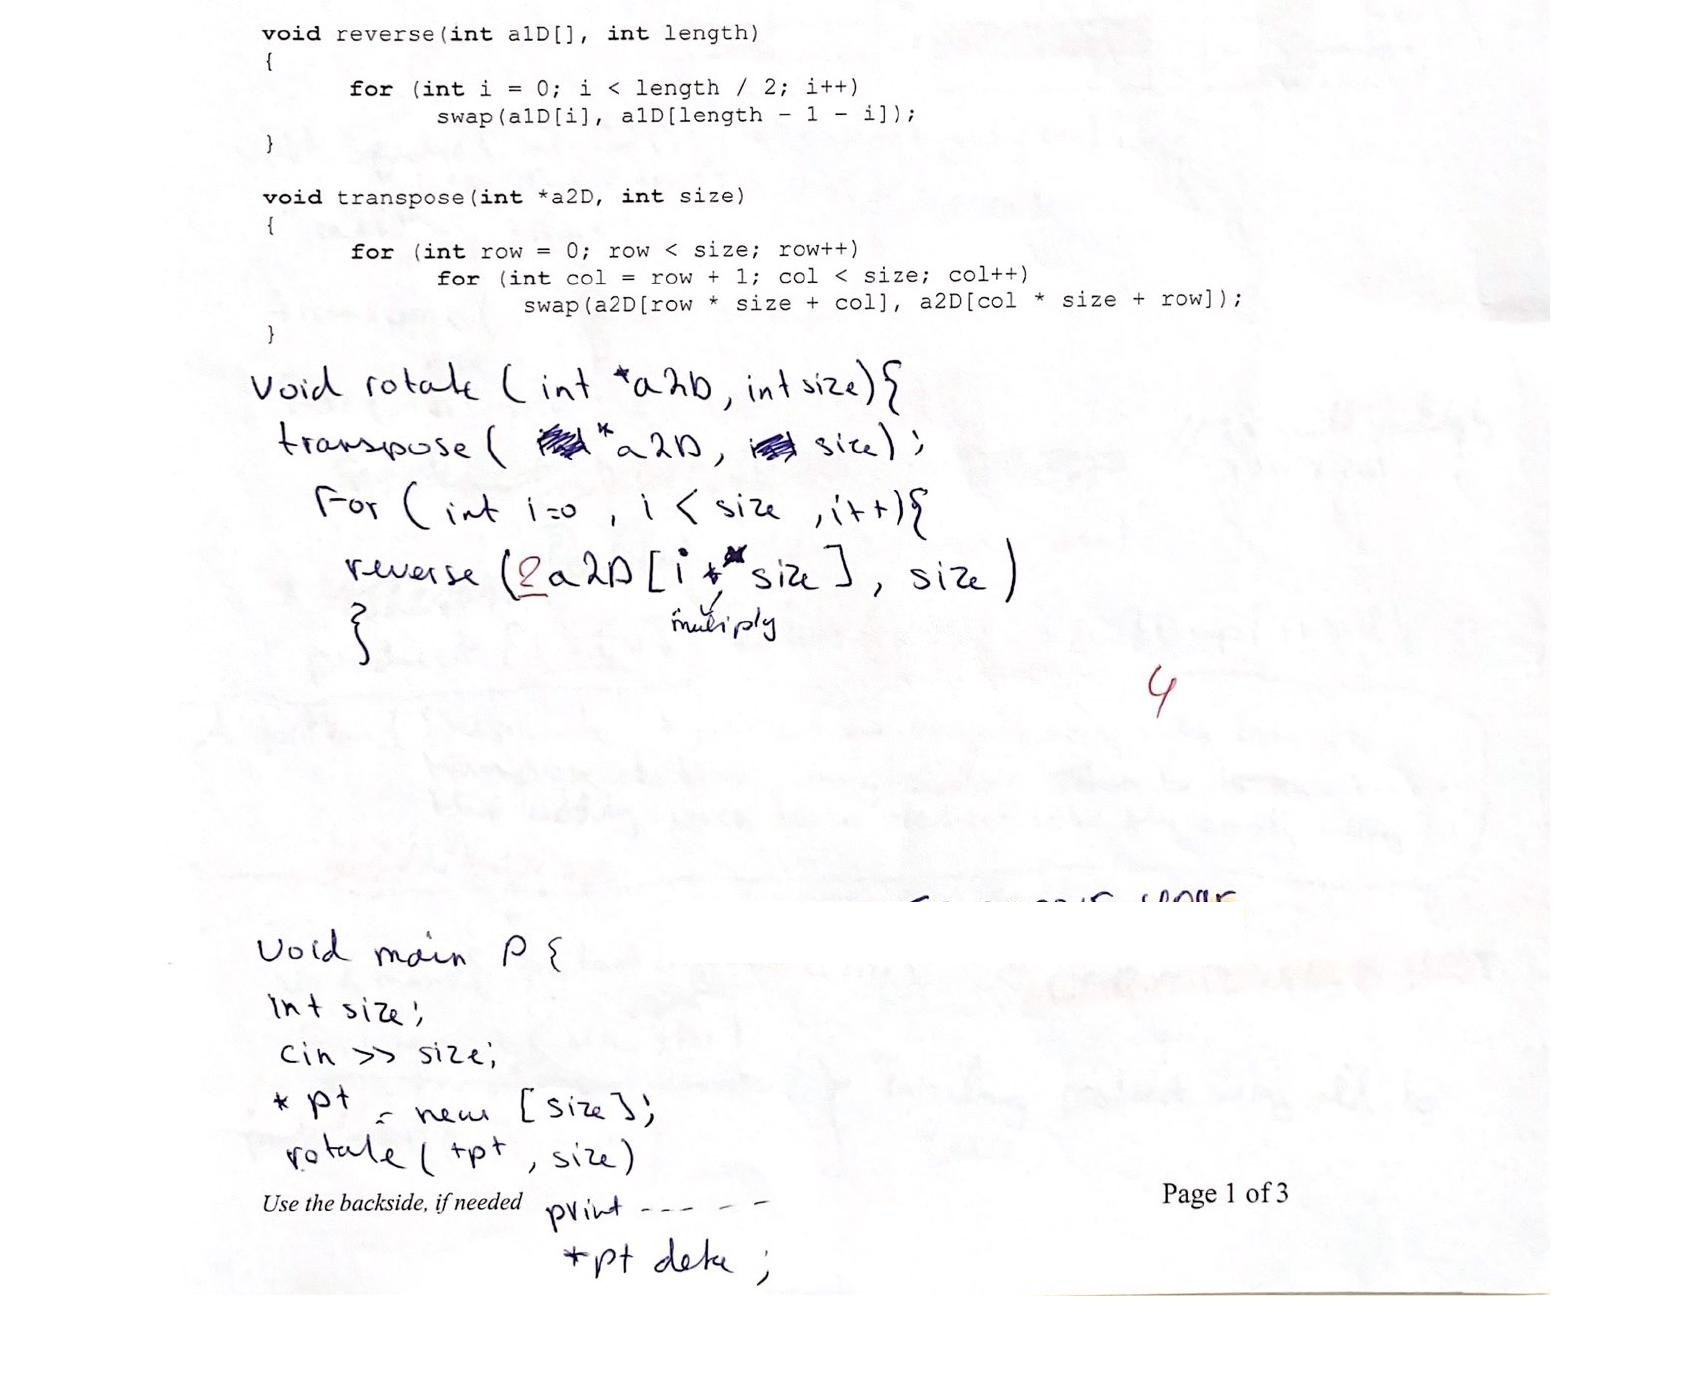 void reverse(int a1D[], int length)
{
for (int i = 0; i < length / 2; i++)
swap(a1D[i], a1D[length - 1 - i]);
}
void transpose(int *a2D, int size)
{
for (int row = 0; row < size; row++)
for (int col = row + 1; col < size; col++)
swap(a2D[row * size + col], a2D[col * size + row]);
}
void rotate (int *a2D, int size){
transpose( *a2D, size);
For (int i=0, i < size, i++){
reverse (a2D[i * size], size)
multiply
}
4
void main {
int size;
cin >> size;
*pt = new [size];
rotate( *pt, size)
Use the backside, if needed
print -----
Page 1 of 3
*pt